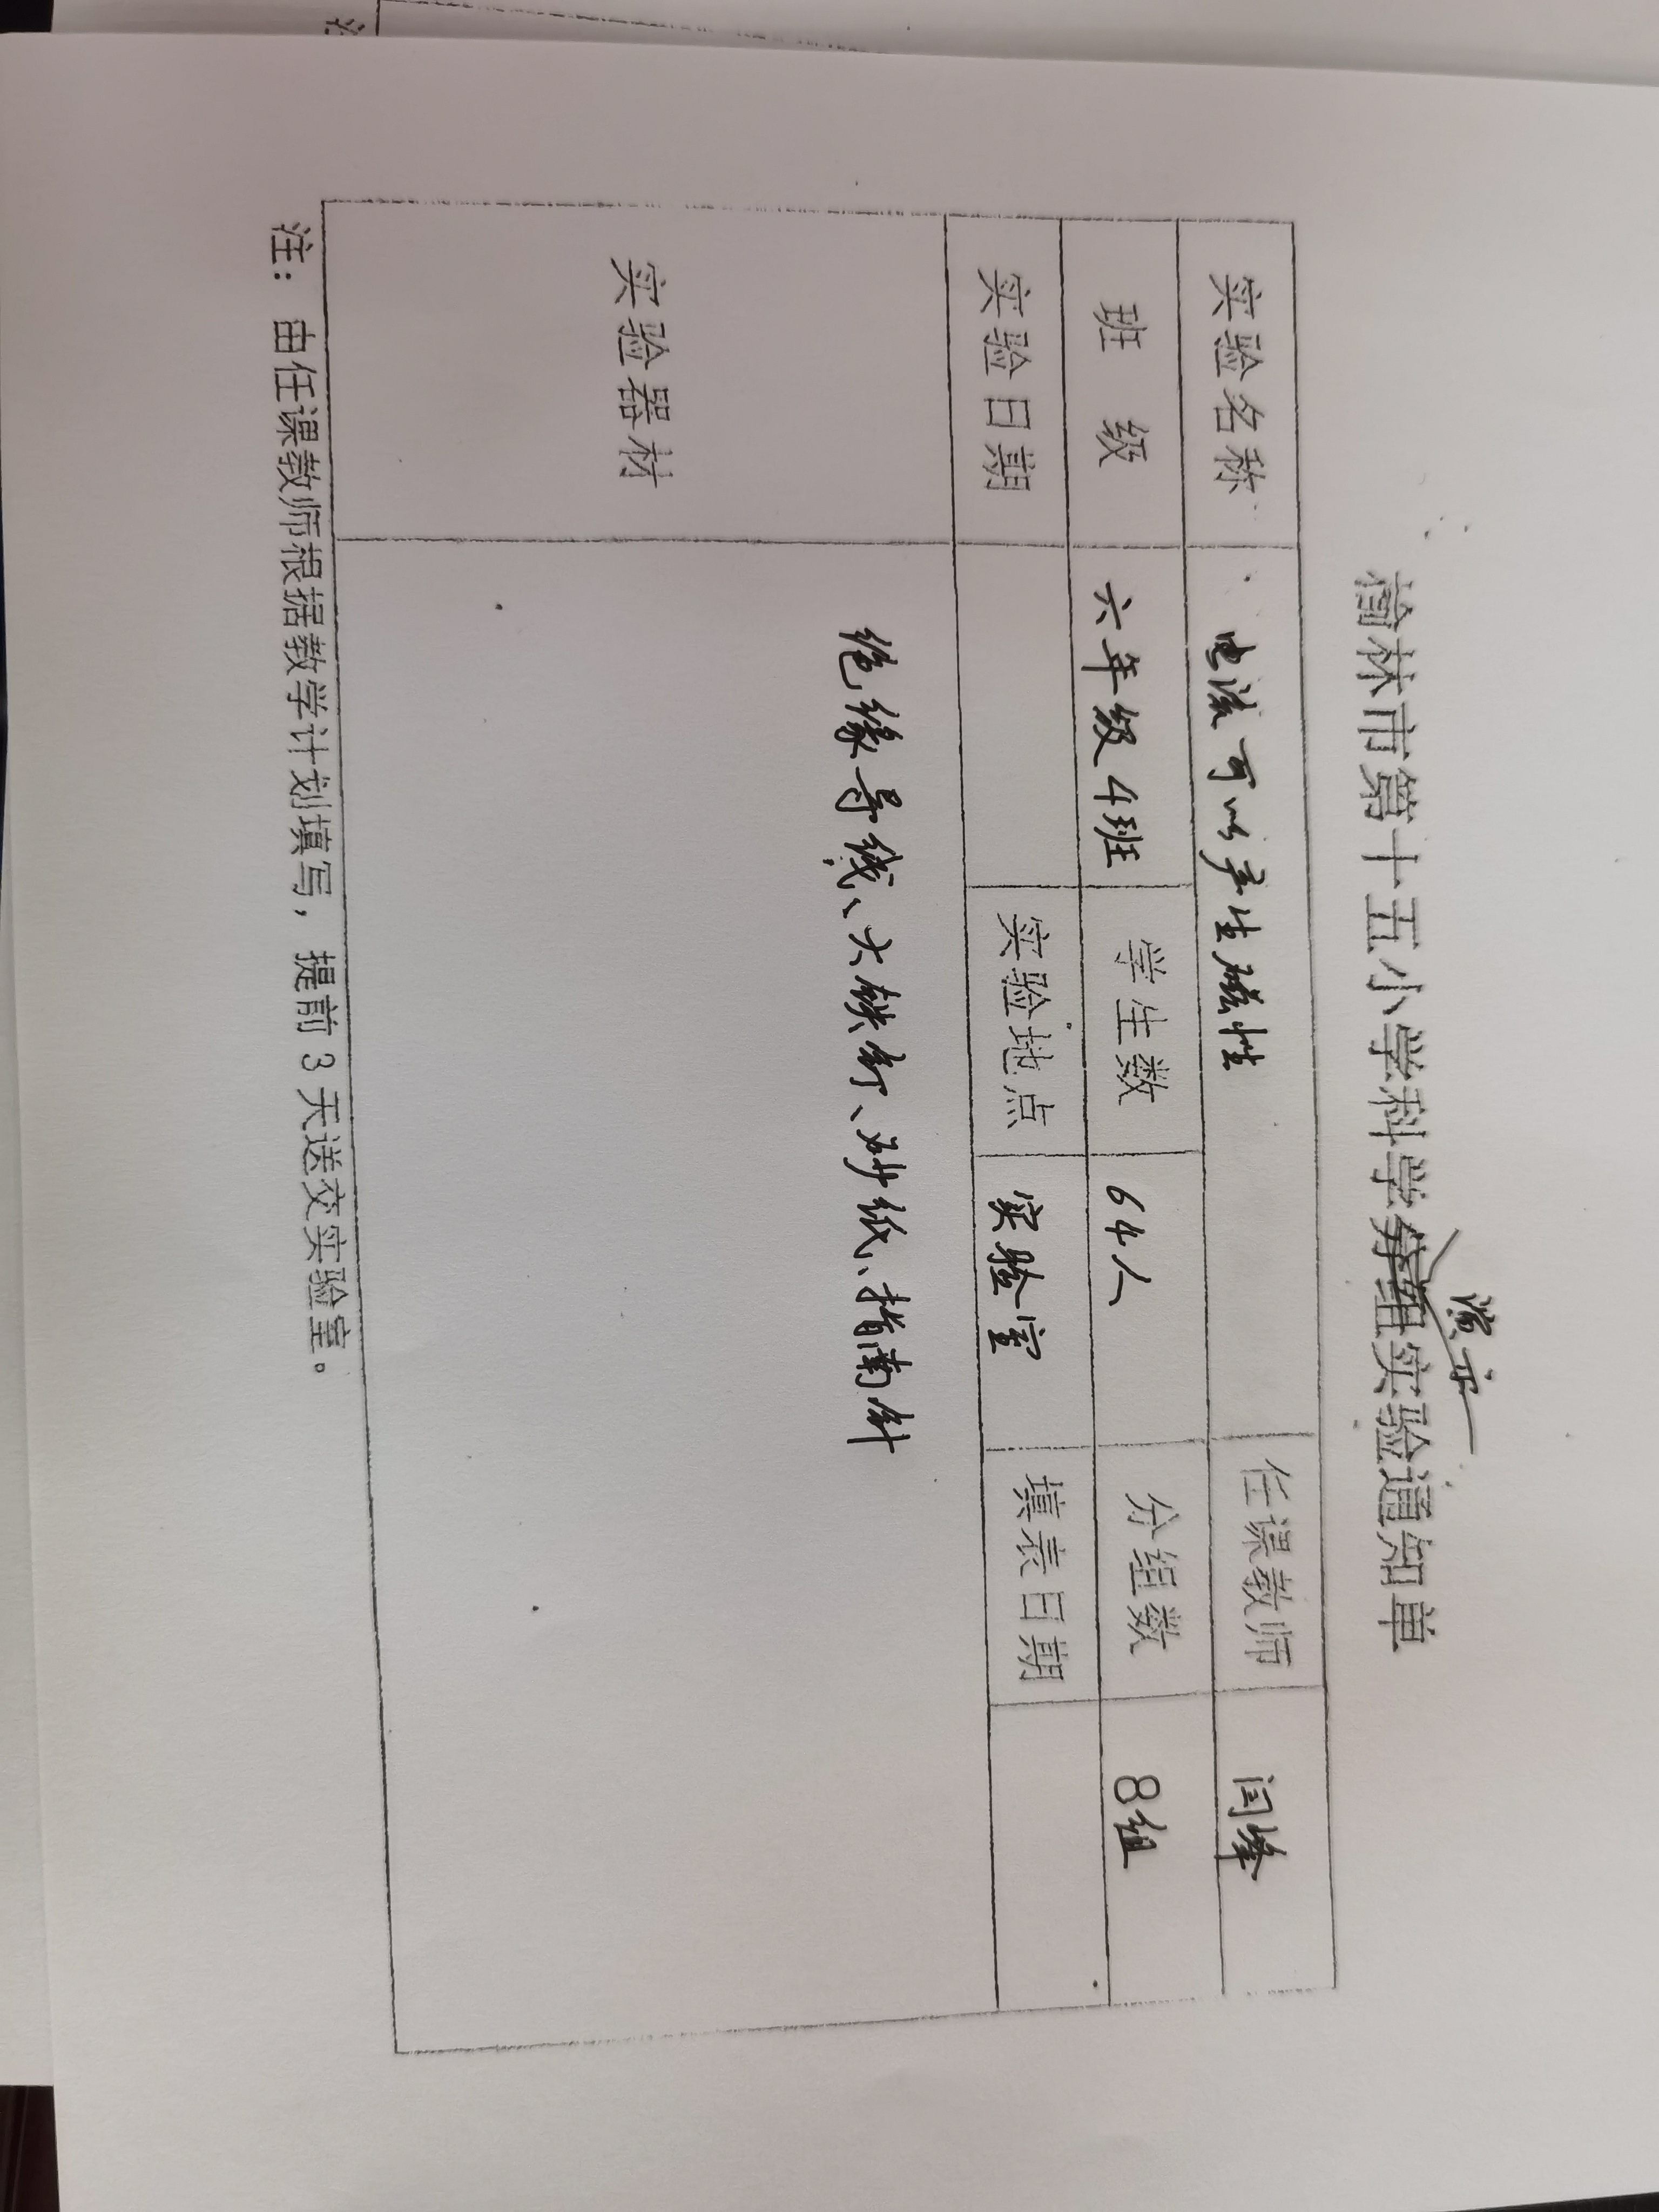 演示
榆林市第十五小学科学分组实验通知单
实验名称 电流可以产生磁性 任课教师 闫峰
班 级 六年级4班 学生数 64人 分组数 8组
实验日期 实验地点 实验室 填表日期
实验器材 绝缘导线、大铁钉、砂纸、指南针
注：由任课教师根据教学计划填写，提前3天送交实验室。